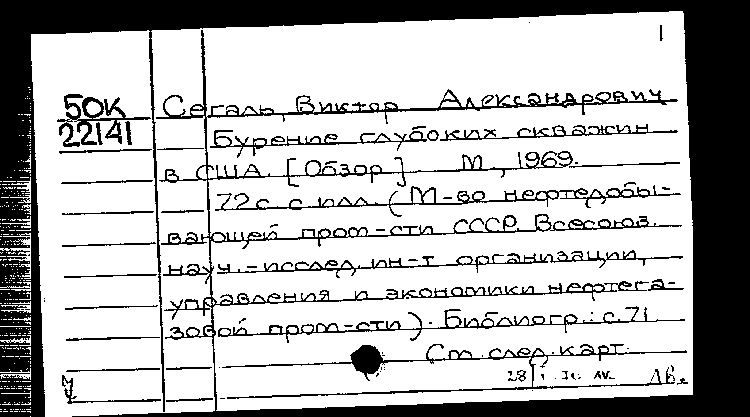 1
50К
22141
Сегаль, Виктор Александрович
Бурение глубоких скважин
в США. [Обзор] М., 1969.
72 с. с илл. (М-во нефтедобы-
вающей пром-сти СССР. Всесоюз.
науч.-исслед. ин-т организации,
управления и экономики нефтега-
зовой пром-сти). Библиогр.: с. 71.
См. след. карт.
28